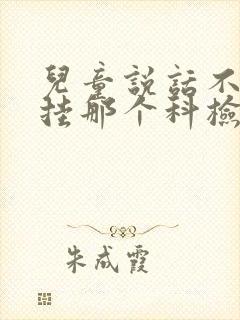 兒童説話不
挂那个科檢
朱成霞